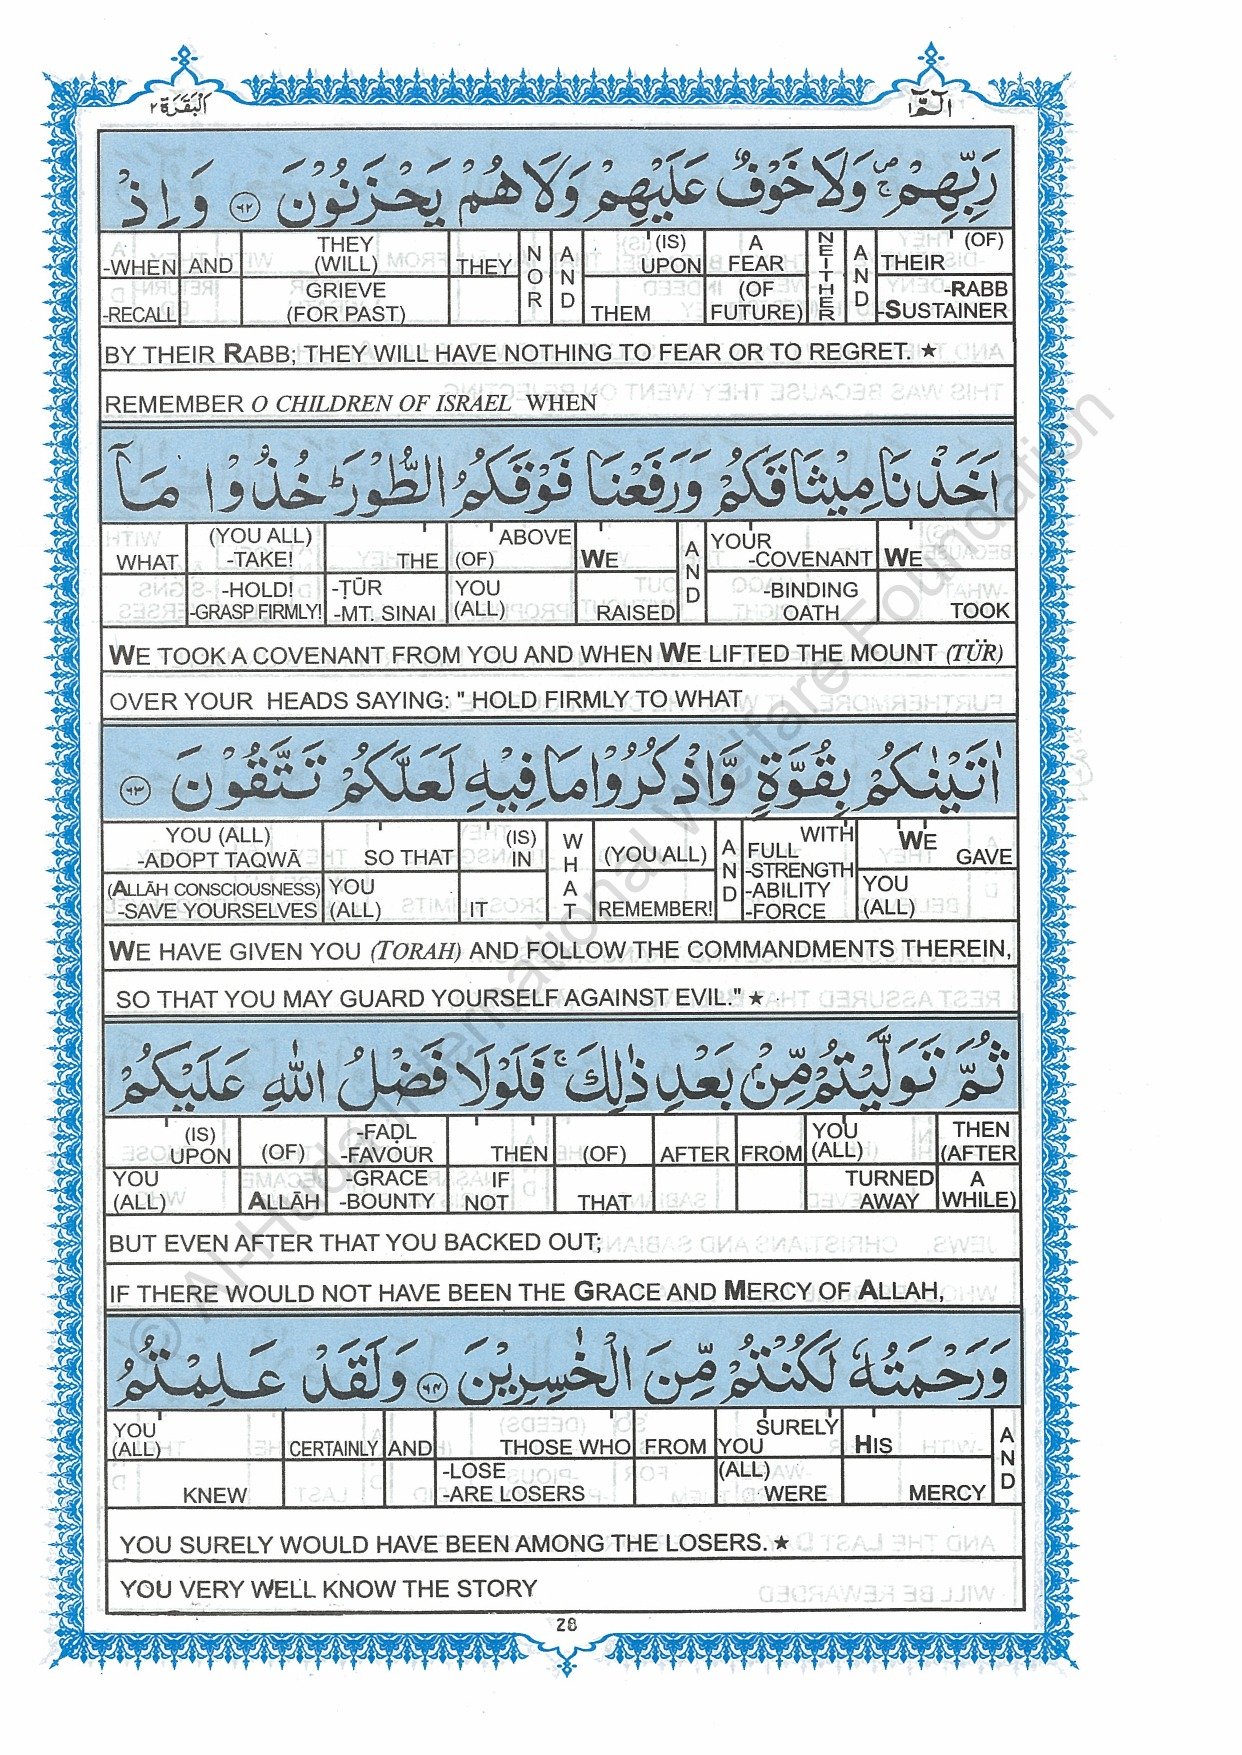 الٓمّٓ ١
اَلْبَقَرَة ٢
رَبِّهِمْ ۚۖ وَلَا خَوْفٌ عَلَيْهِمْ وَلَا هُمْ يَحْزَنُوْنَ ۶۲ وَ اِذْ
(OF) THEIR -RABB -SUSTAINER | AND | NEITHER | A FEAR (OF FUTURE) | (IS) UPON THEM | AND | NOR | THEY | THEY (WILL) GRIEVE (FOR PAST) | AND | -WHEN -RECALL
BY THEIR RABB; THEY WILL HAVE NOTHING TO FEAR OR TO REGRET. ★
REMEMBER O CHILDREN OF ISRAEL WHEN
اَخَذْنَا مِيْثَاقَكُمْ وَرَفَعْنَا فَوْقَكُمُ الطُّوْرَ ؕ خُذُوْا مَآ
WE TOOK | YOUR -COVENANT -BINDING OATH | AND | WE RAISED | ABOVE (OF) YOU (ALL) | THE -ṬŪR -MT. SINAI | (YOU ALL) -TAKE! -HOLD! -GRASP FIRMLY! | WHAT
WE TOOK A COVENANT FROM YOU AND WHEN WE LIFTED THE MOUNT (TÜR)
OVER YOUR HEADS SAYING: " HOLD FIRMLY TO WHAT
اٰتَيْنٰكُمْ بِقُوَّةٍ وَّاذْكُرُوْا مَا فِيْهِ لَعَلَّكُمْ تَتَّقُوْنَ ۶۳
WE GAVE YOU (ALL) | WITH FULL -STRENGTH -ABILITY -FORCE | AND | (YOU ALL) REMEMBER! | WHAT | (IS) IN IT | SO THAT YOU (ALL) | YOU (ALL) -ADOPT TAQWĀ (ALLĀH CONSCIOUSNESS) -SAVE YOURSELVES
WE HAVE GIVEN YOU (TORAH) AND FOLLOW THE COMMANDMENTS THEREIN,
SO THAT YOU MAY GUARD YOURSELF AGAINST EVIL." ★
ثُمَّ تَوَلَّيْتُمْ مِّنْۢ بَعْدِ ذٰلِكَ ۚ فَلَوْلَا فَضْلُ اللّٰهِ عَلَيْكُمْ
THEN (AFTER A WHILE) | YOU (ALL) TURNED AWAY | FROM | AFTER | (OF) THAT | THEN IF NOT | -FAḌL -FAVOUR -GRACE -BOUNTY | (OF) ALLĀH | (IS) UPON YOU (ALL)
BUT EVEN AFTER THAT YOU BACKED OUT;
IF THERE WOULD NOT HAVE BEEN THE GRACE AND MERCY OF ALLAH,
وَرَحْمَتُهٗ لَكُنْتُمْ مِّنَ الْخٰسِرِيْنَ ۶۴ وَلَقَدْ عَلِمْتُمُ
AND | HIS MERCY | SURELY YOU (ALL) WERE | FROM | THOSE WHO -LOSE -ARE LOSERS | AND | CERTAINLY | YOU (ALL) KNEW
YOU SURELY WOULD HAVE BEEN AMONG THE LOSERS. ★
YOU VERY WELL KNOW THE STORY
28
© Al-Huda International Welfare Foundation